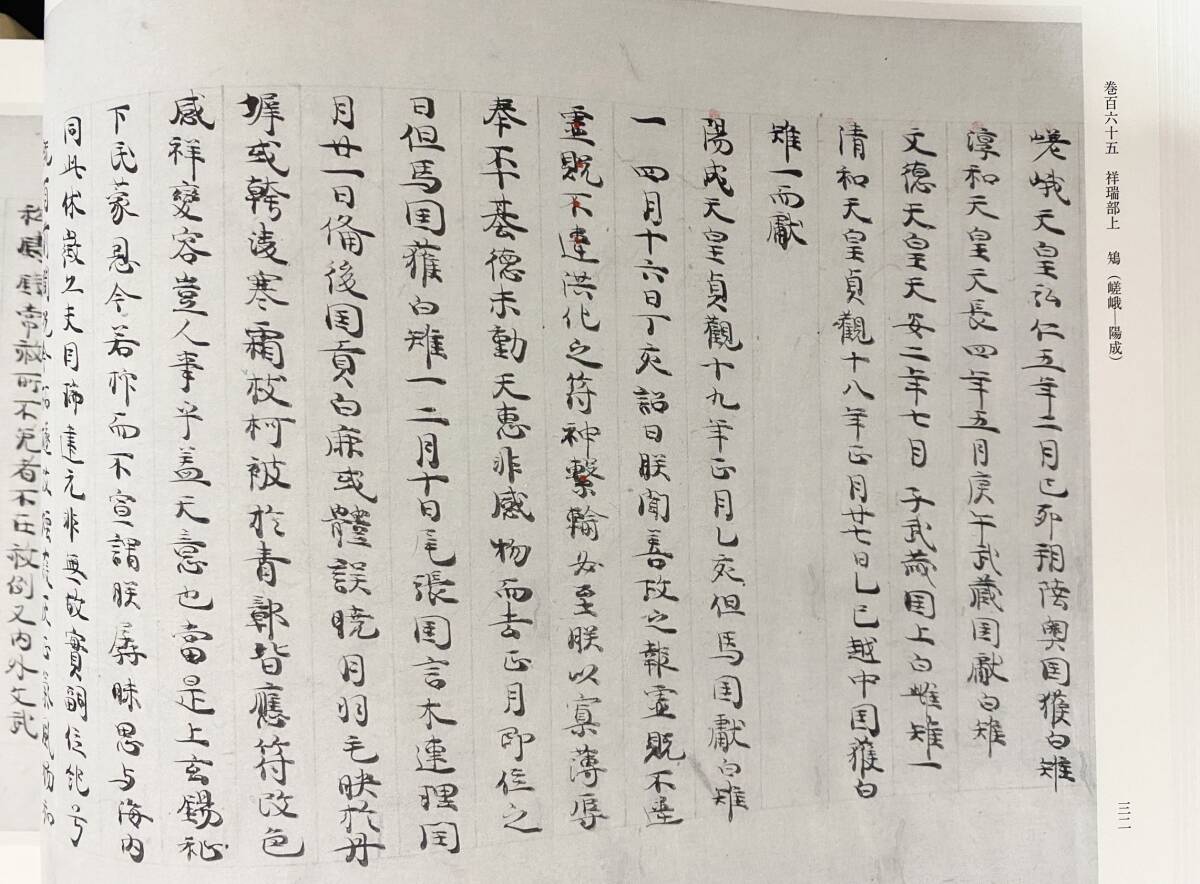 巻百六十五　祥瑞部上　雉（嵯峨―陽成）
三二
嵯峨天皇弘仁五年二月己卯朔陸奥国獲白雉
淳和天皇天長四年五月庚午武蔵国献白雉
文徳天皇天安二年七月　子武蔵国上白雌雉一
清和天皇貞觀十八年正月廿七日己巳越中国獲白
雉一而獻
陽成天皇貞觀十九年正月乙亥但馬国獻白雉
一　四月十六日丁亥詔曰朕聞善政之報霊貺不
霊貺不違洪化之符神繋輪必至朕以寡薄辱
奉丕基德未動天恵非感物而去正月即位之
日但馬国獲白雉一二月十日尾張国言木連理閏
月廿一日備後国貢白鹿或體誤暁月羽毛映於丹
墀或幹凌寒霜枝柯被於青鄣皆應符改色
感祥變容豈人事乎盖天意也當是上玄錫祉
下民蒙恩今若祚而不宣謂朕孱昧思与海内
同此休徴又夫目瑞建元非無故實嗣位銘号
常赦所不免者不在赦例又内外文武